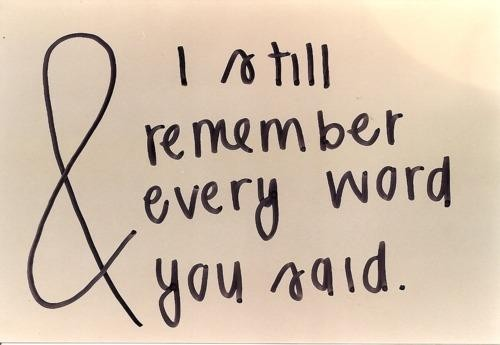 & I still
remember
every word
you said.